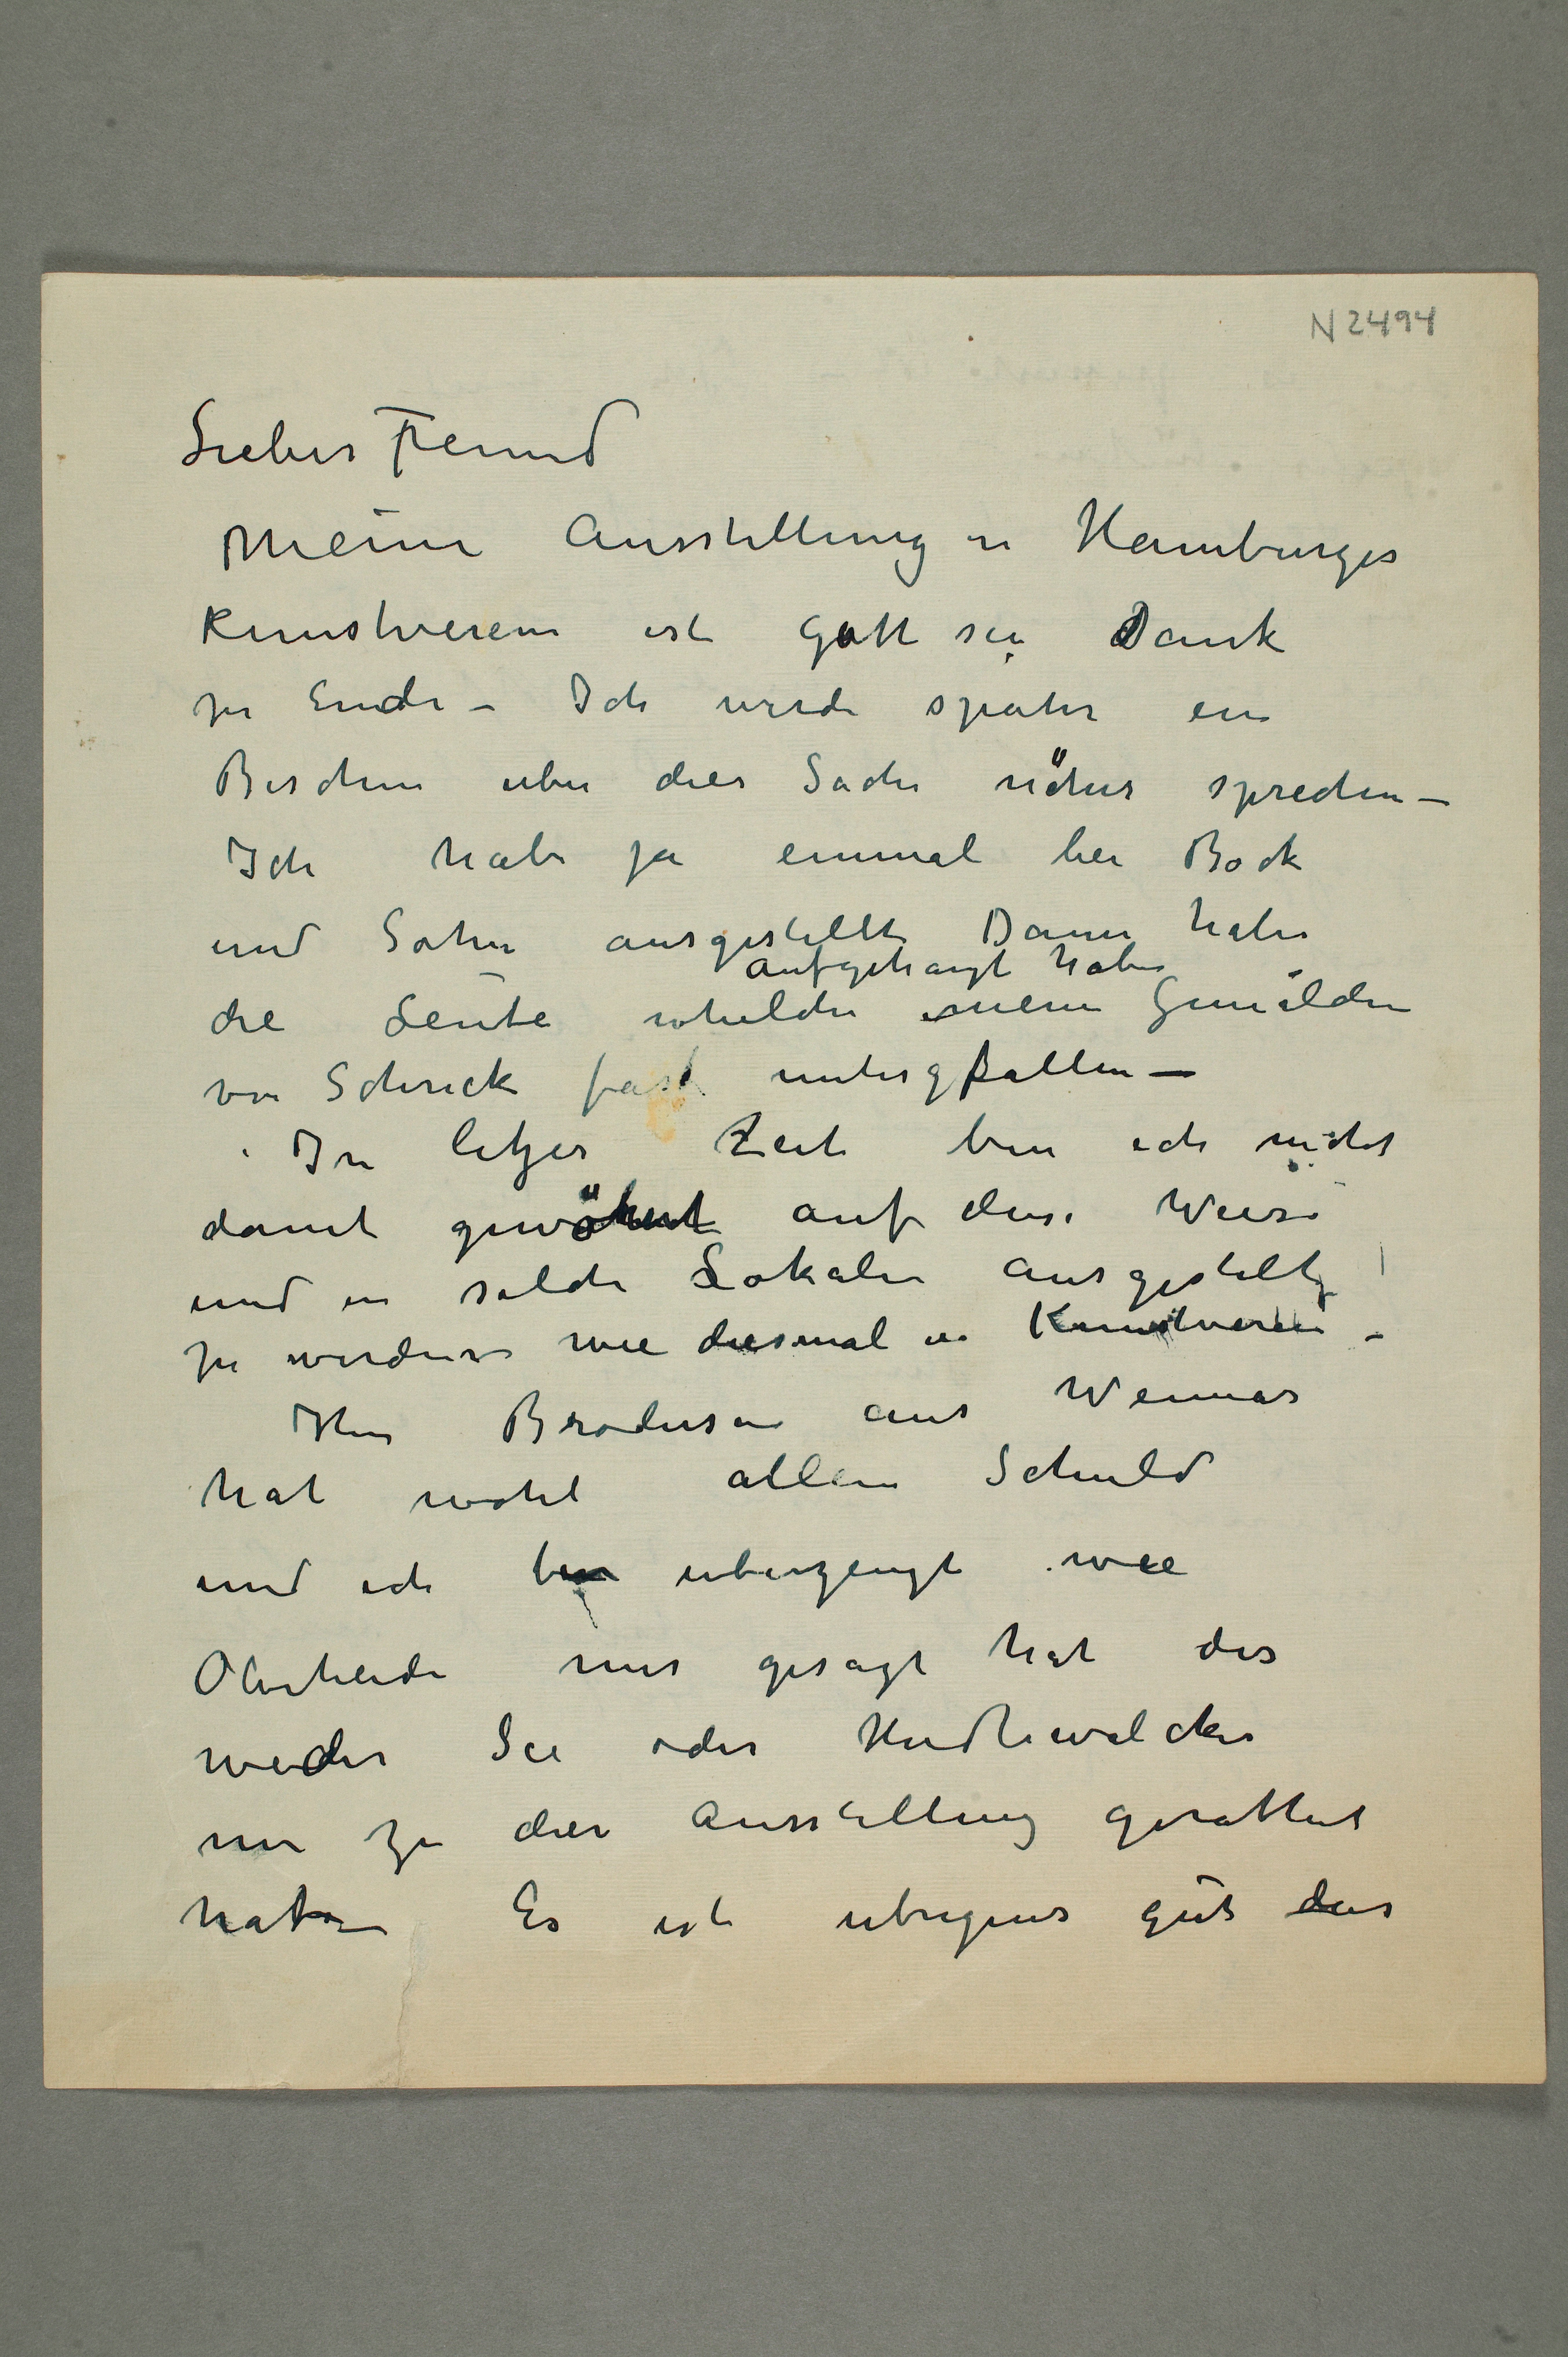 N 2494
Lieber Freund
Meine Ausstellung in Hamburger
Kunstverein ist Gott sei Dank
zu Ende – Ich werde später ein
Bischen über dies Sache näher sprechen –
Ich habe ja einmal bei Bock
und Sohn ausgestellt Dann haben
aufgehängt haben
die Leute welche meine Gemälden
vor Schreck fast untergfallen –
In letzer Zeit bin ich nicht
damit gewöhnt auf diese Weise
und in solche Lokalen ausgestellt
zu werden wie diesmal in Kunstverein –
Herr Brodersen aus Weimar
hat wohl allein Schuld
und ich bin uberzeugt wie
Oberheide mir gesagt hat das
weder Sie oder Hudtwalcker
mir zu dies Ausstellung gerathet
haben Es ist ubrigens gut das